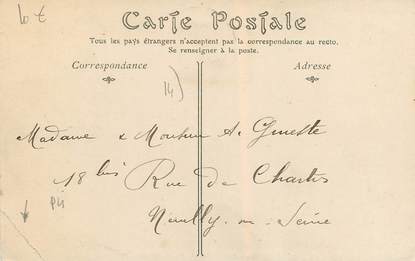 Carte Postale
Tous les pays étrangers n'acceptent pas la correspondance au recto.
Se renseigner à la poste.
Correspondance
Adresse
14)
Madame & Monsieur A. Gineste
18 bis Rue de Chartres
Neuilly-sur-Seine